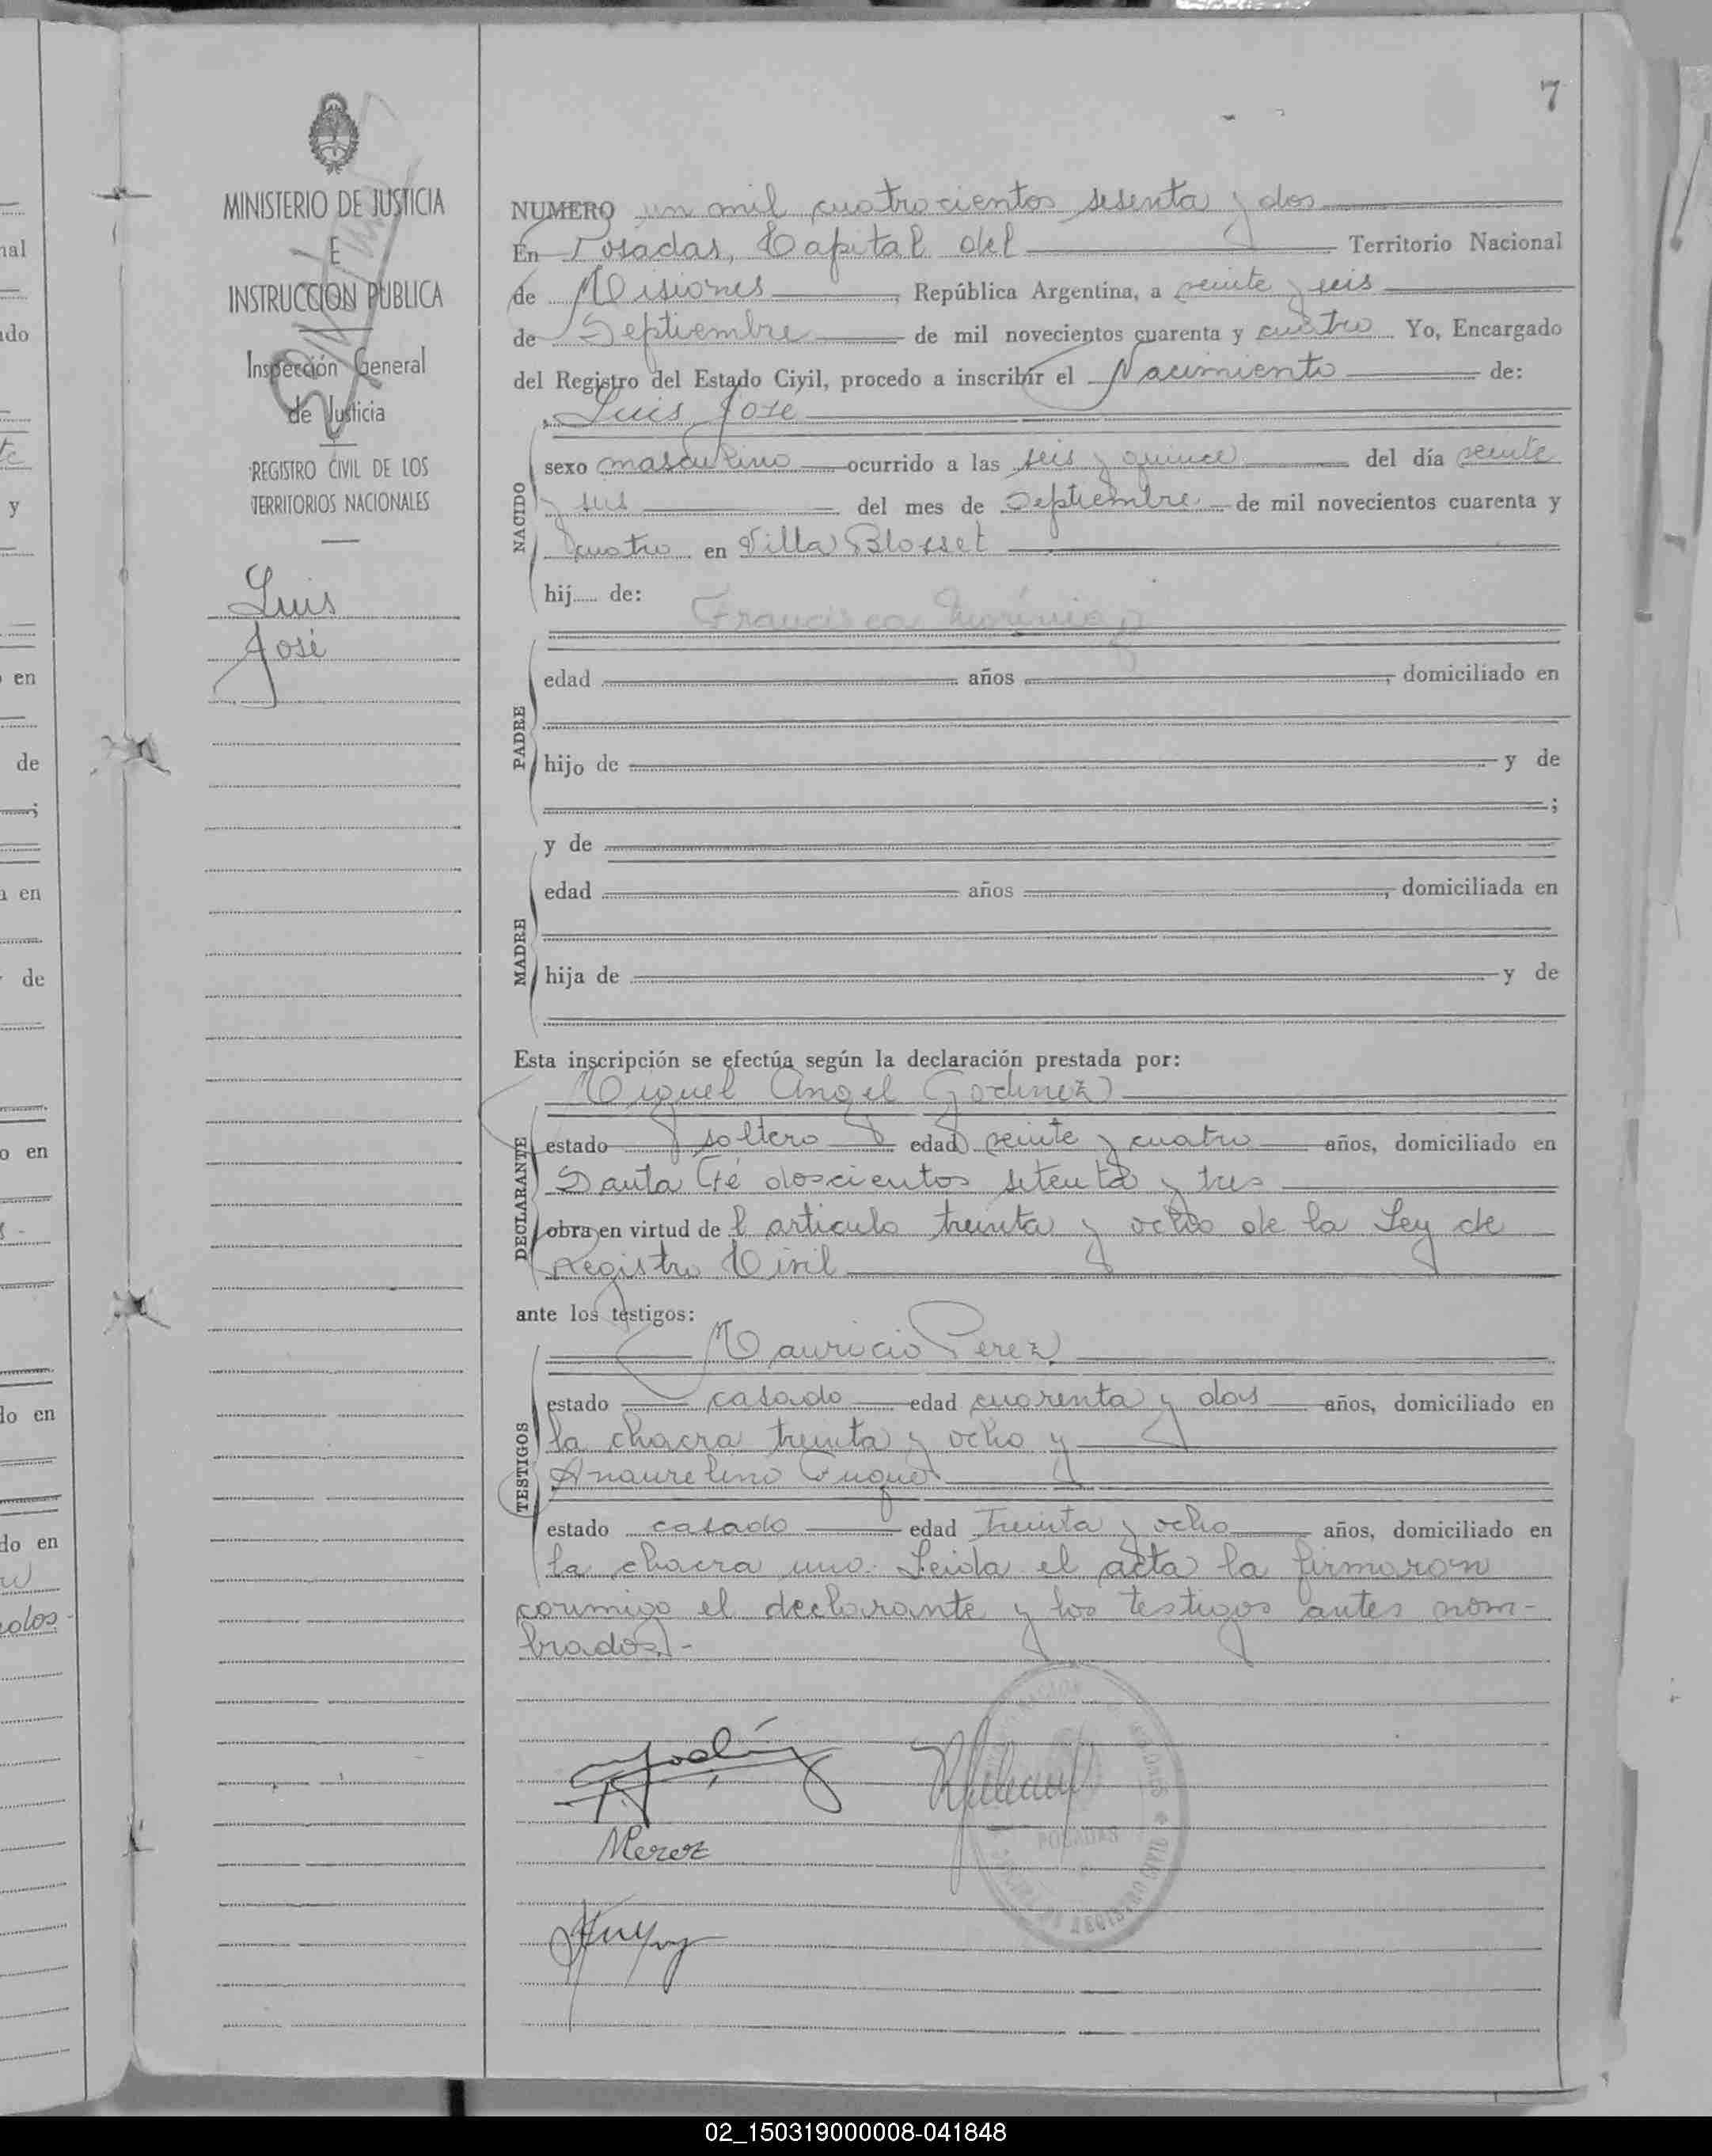 7
MINISTERIO DE JUSTICIA
E
INSTRUCCION PUBLICA
Inspección General
de Justicia
REGISTRO CIVIL DE LOS
TERRITORIOS NACIONALES
Luis
José
NUMERO un mil cuatrocientos sesenta y dos
En Posadas, Capital del Territorio Nacional
de Misiones, República Argentina, a veinte y seis
de Septiembre de mil novecientos cuarenta y cuatro Yo, Encargado
del Registro del Estado Civil, procedo a inscribir el Nacimiento de:
Luis José
NACIDO
sexo masculino ocurrido a las seis y quince del día veinte
y seis del mes de Septiembre de mil novecientos cuarenta y
cuatro en Villa Blosset
hij..... de:
Francisca
PADRE
edad años, domiciliado en
hijo de y de
;
y de
MADRE
edad años, domiciliada en
hija de y de
Esta inscripción se efectúa según la declaración prestada por:
Miguel Angel Godinez
DECLARANTE
estado soltero edad veinte y cuatro años, domiciliado en
Santa Fé doscientos setenta y tres
obra en virtud del articulo treinta y ocho de la Ley de
Registro Civil
ante los testigos:
Mauricio Perez
TESTIGOS
estado casado edad cuarenta y dos años, domiciliado en
la chacra treinta y ocho y
estado casado edad treinta y ocho años, domiciliado en
la chacra uno. Leida el acta la firmaron
conmigo el declarante y los testigos antes nom-
brados.-
MPerez
POSADAS
02_150319000008-041848